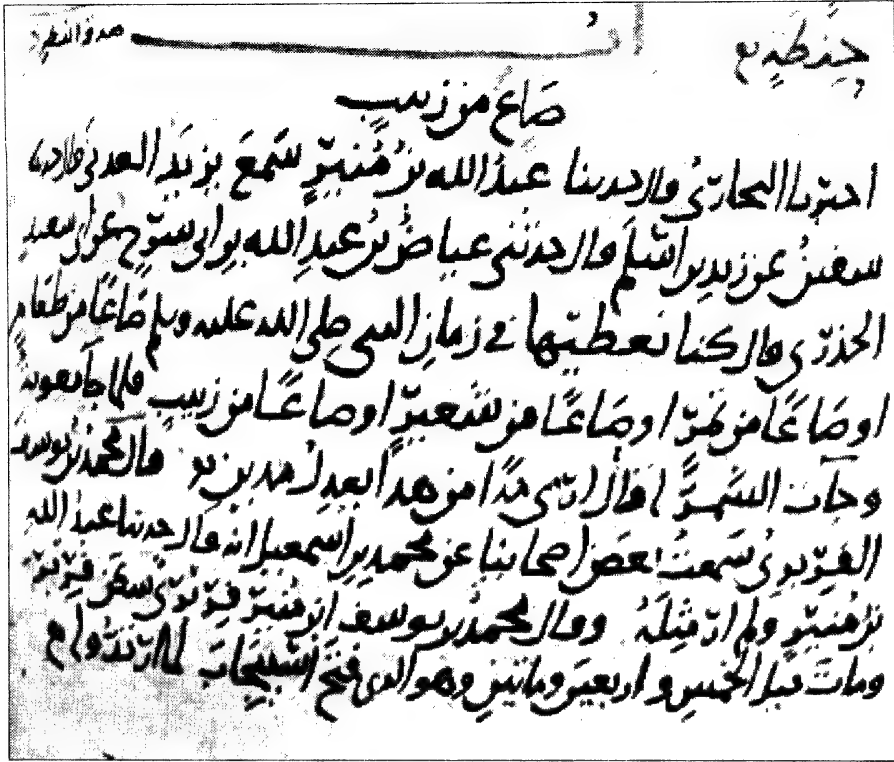 صدقة الفطر
صاع من زبيب
اخبرنا البخاري قال حدثنا عبد الله بن منير سمع يزيد العدني قال حدثنا
سفين عن زيد بن اسلم قال حدثني عياض بن عبد الله بن ابي سرح عن ابي سعيد
الخدري قال كنا نعطيها في زمان النبي صلى الله عليه وسلم صاعًا من طعام
او صاعًا من تمر او صاعًا من شعير او صاعًا من زبيب فلما جا معوية
وجات السمرا قال ارى مدًا من هذا يعدل مدين قال محمد بن يوسف
الفربري سمعت بعض اصحابنا عن محمد بن اسمعيل انه قال حدثنا عبد الله
بن منير ولم ار مثله وقال محمد بن يوسف ابن منير فربري سكن فربر
ومات قبل الخمس واربعين ومايتين وهو الذي فتح اسبيجاب لما ارتدوا